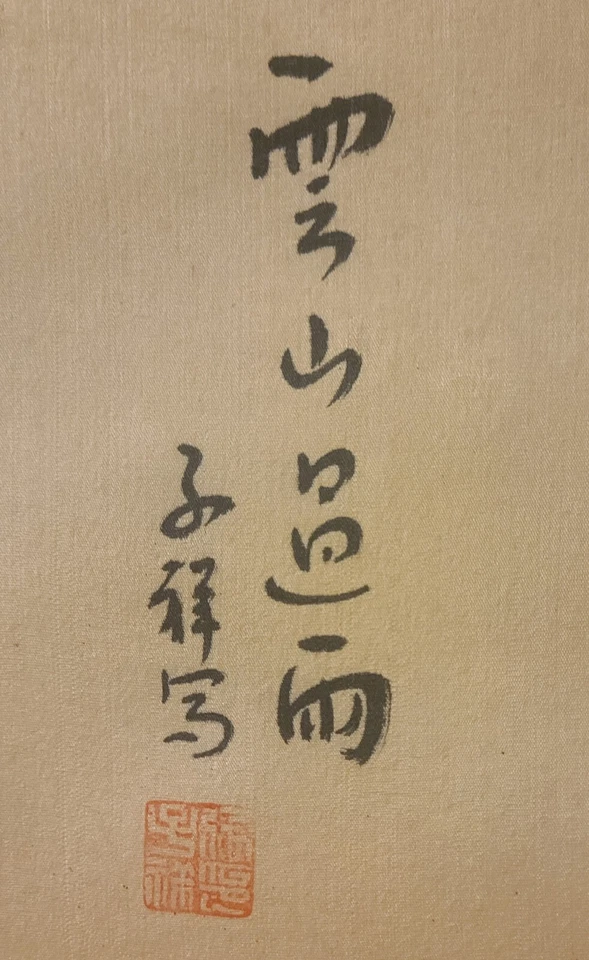 雲山過雨
子祥写